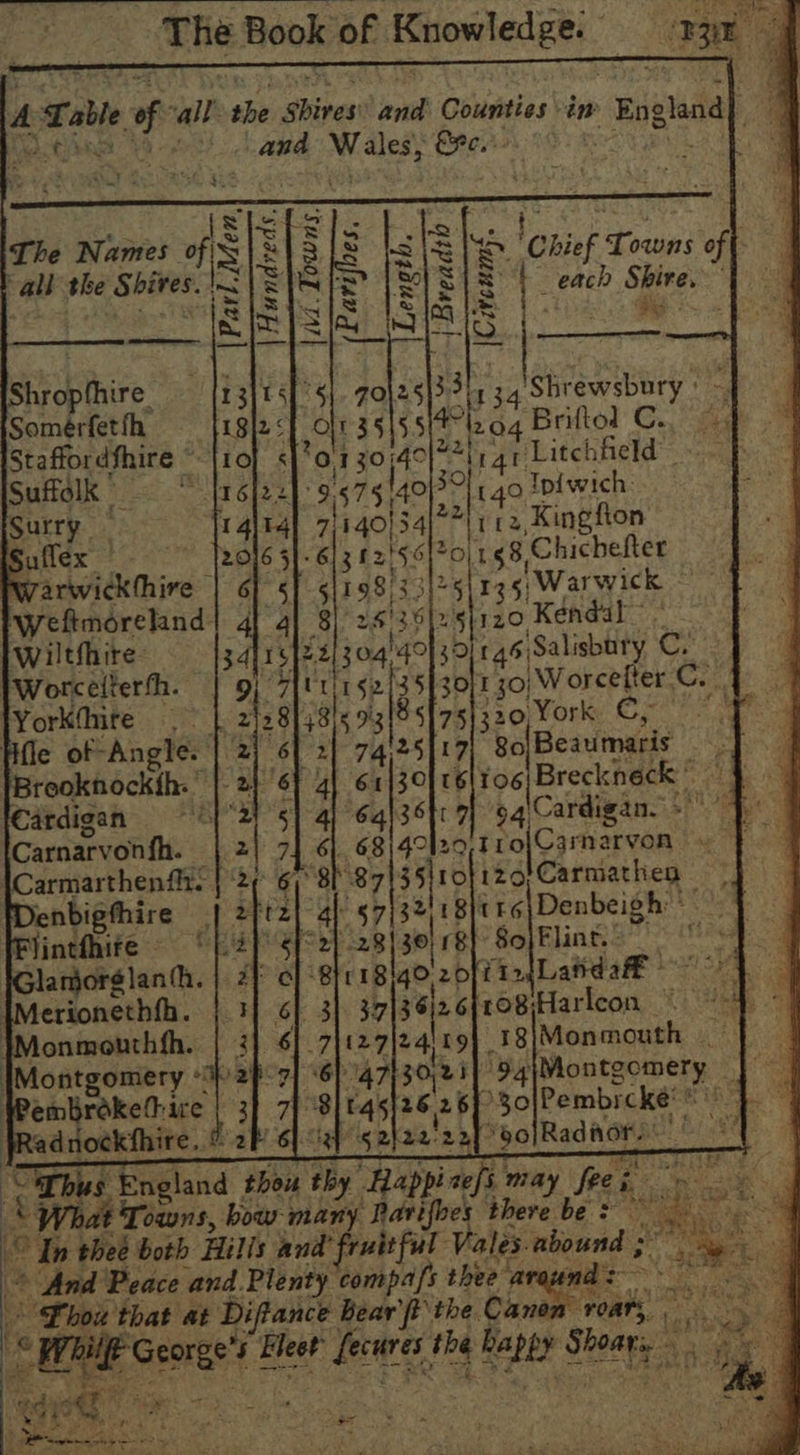 The Book of Knowledge. 131
A Table of all the Shires and Counties in England
and Wales, &c.
The Names of all the Shires. | Parl. Men. | Hundreds. | M. Towns. | Parishes. | Length. | Breadth | Circumf. | Chief Towns of each Shire.
Shropſhire 13 15 5 70 25 33 134 Shrewsbury
Somerſetſh 18 2 0 135 55 40 204 Briſtol C.
Staffordſhire 10 5 0 130 40 22 141 Litchfield
Suffolk 16 22 9 575 40 30 140 Ipſwich
Surry 14 14 7 140 34 22 112 Kingſton
Suſſex 20 63 6 312 56 20 158 Chicheſter
Warwickſhire 6 5 5 198 33 25 135 Warwick
Weſtmoreland 4 4 8 26 36 25 120 Kendal
Wiltſhire 34 15 22 304 40 30 146 Salisbury C.
Worceſterſh. 9 7 11 152 35 30 130 Worceſter C.
Yorkſhire 2 28 48 593 85 75 320 York C,
Iſle of Angle. 2 6 2 74 25 17 80 Beaumaris
Breoknockſh. 2 6 4 61 30 16 106 Breckneck
Cardigan 2 5 4 64 36 17 94 Cardigan.
Carnarvonſh. 2 7 6 68 40 20 110 Carnarvon
Carmarthenſh. 2 6 8 87 35 10 120 Carmathen
Denbigſhire 2 12 4 57 32 18 116 Denbeigh
Flintſhire 2 5 2 28 30 18 80 Flint.
Glamorglanſh. 2 0 8 118 40 20 112 Landaff
Merionethſh. 1 6 3 37 36 26 108 Harlcon
Monmouthſh. 3 6 7 127 24 19 18 Monmouth
Montgomery 2 7 6 47 30 21 94 Montgomery
Pembrokeſhire 3 7 8 145 26 26 30 Pembrcke
Radnockſhire. 2 6 52 22 22 90 Radnor.
Thus England thou thy Happineſs may ſee;
What Towns, how many Pariſhes there be:
In thee both Hills and fruitful Vales abound;
And Peace and Plenty compaſs thee around:
Thou that at Diſtance bear'ſt the Canon roar,
Whilſt George's Fleet ſecures the happy Shoar.
As